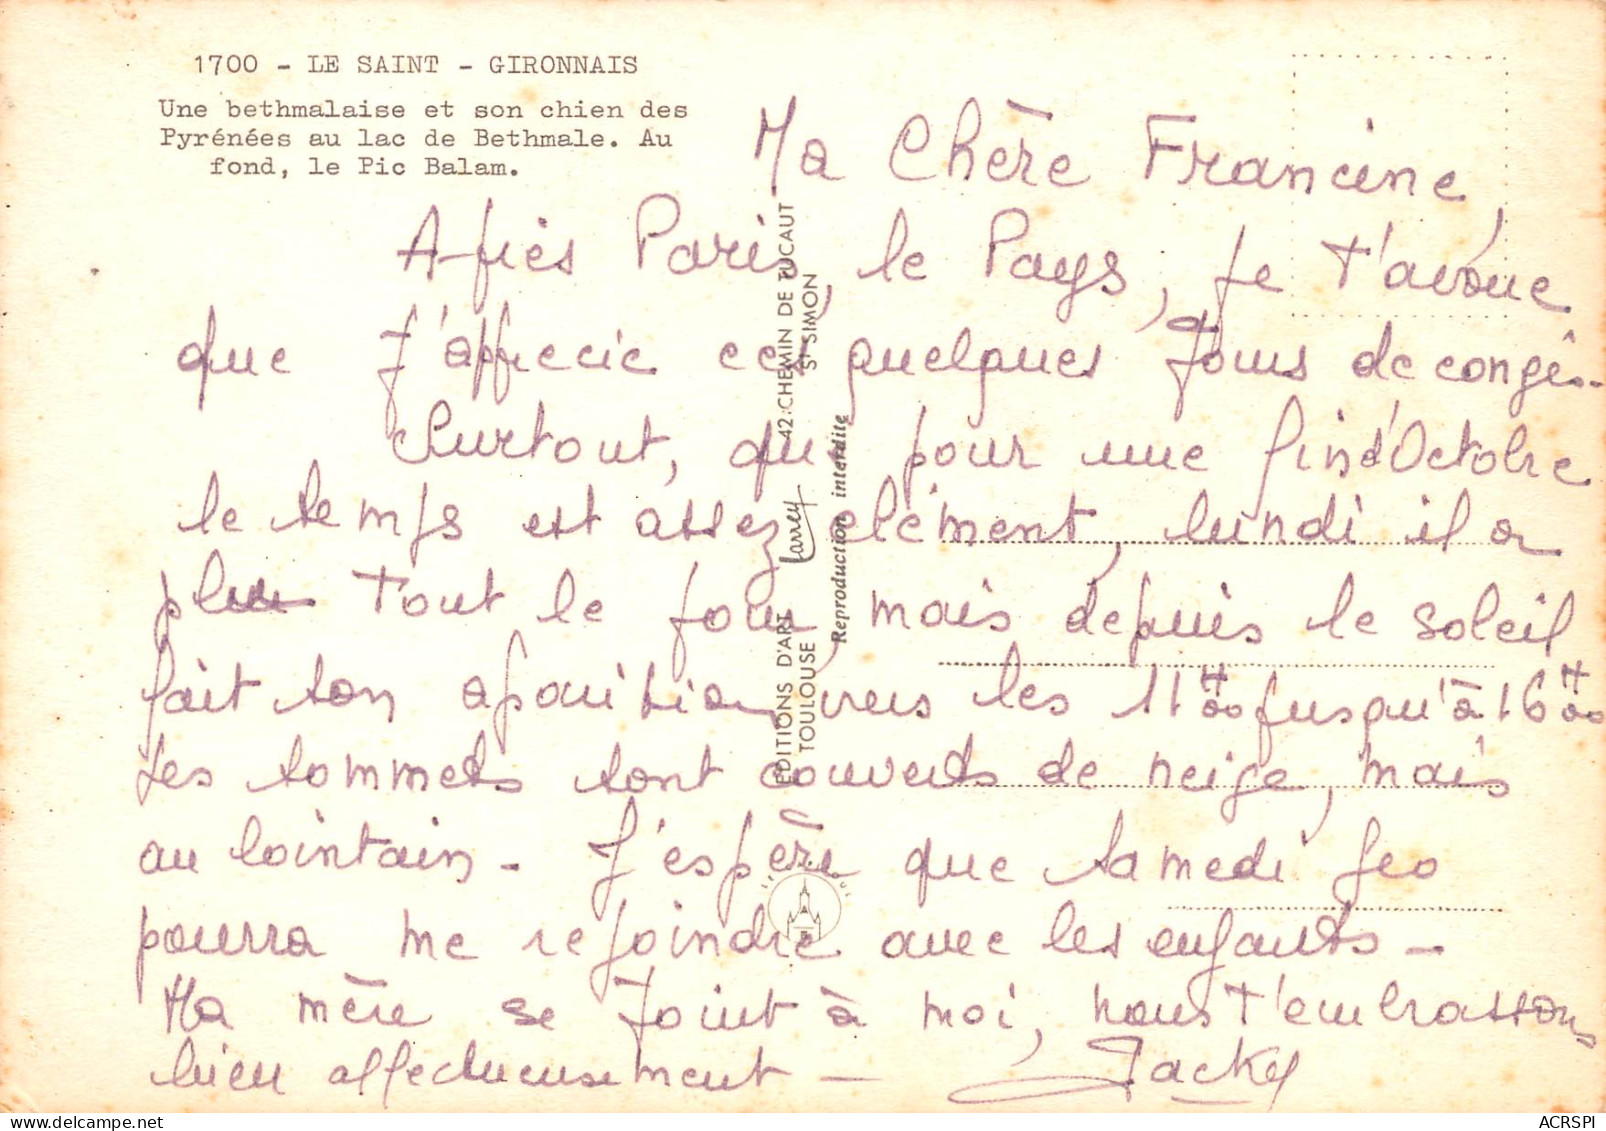 1700 - LE SAINT - GIRONNAIS
Une bethmalaise et son chien des
Pyrénées au lac de Bethmale. Au
fond, le Pic Balam.
EDITIONS D'ART Larrey 42, CHEMIN DE TUCAUT
TOULOUSE St SIMON
Reproduction interdite
Ma Chère Francine,
Après Paris, le Pays, je t'avoue
que j'apprecie ces quelques jours de congés.
Surtout, que pour une fin d'Octobre
le temps est assez clément, lundi il a
plu tout le jour, mais depuis le soleil
fait son aparition vers les 11H00 jusqu'à 16H00
Les sommets sont couverts de neige, mais
au lointain - J'espère que samedi Geo
pourra me rejoindre avec les enfants -
Ma mère se joint à moi, nous t'embrassons
bien affectueusement - Jacky
DELCAMPE.NET
ACRSPI